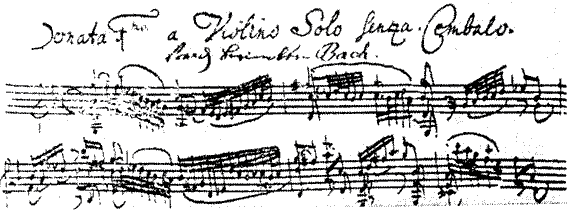 Sonata 1ma a Violino Solo senza Cembalo.
Bach.